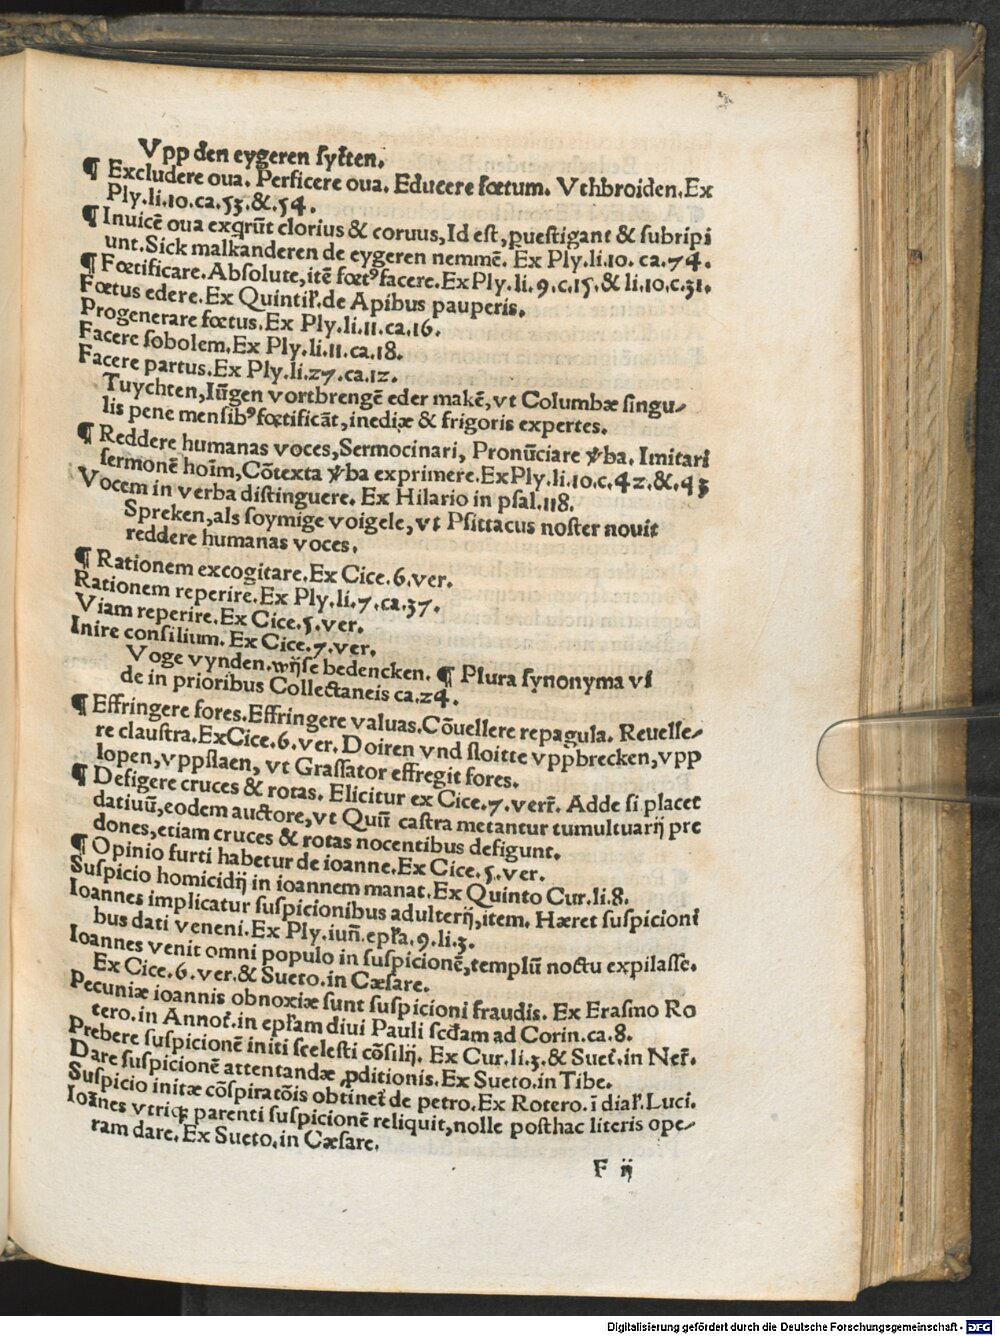 Vpp den eygeren sytten.
¶ Excludere oua. Perficere oua. Educere fœtum. Vthbroiden. Ex
Ply.li.10.ca.53.&.54.
¶ Inuicē oua exqrūt clorius & coruus, Id est, puestigant & subripi
unt. Sick malkanderen de eygeren nemmē. Ex Ply.li.10. ca.74.
¶ Fœtificare. Absolute, itē fœtꝰ facere. Ex Ply. li. 9. c.15. & li.10.c.31.
Fœtus edere. Ex Quintil̉. de Apibus pauperis.
Progenerare fœtus. Ex Ply.li.11.ca.16.
Facere sobolem. Ex Ply.li.11.ca.18.
Facere partus. Ex Ply.li.27.ca.12.
Tuychten, Iūgen vortbrengē eder makē, vt Columbæ singu-
lis pene mensibꝰ fœtificāt, inediæ & frigoris expertes.
¶ Reddere humanas voces, Sermocinari, Pronūciare ꝟba. Imitari
sermonē hoīm, Cōtexta ꝟba exprimere. Ex Ply.li.10.c.42.&.43
Vocem in verba distinguere. Ex Hilario in psal.118.
Spreken, als soymige voigele, vt Psittacus noster nouit
reddere humanas voces.
¶ Rationem excogitare. Ex Cice.6.ver.
Rationem reperire. Ex Ply.li.7.ca.37.
Viam reperire. Ex Cice.5.ver.
Inire consilium. Ex Cice.7.ver.
Voge vynden. wijse bedencken. ¶ Plura synonyma vi
de in prioribus Collectaneis ca.24.
¶ Effringere fores. Effringere valuas. Cōuellere repagula. Reuelle-
re claustra. Ex Cice.6.ver. Doiren vnd sloitte vppbrecken, vpp
lopen, vppslaen, vt Grassator effregit fores.
¶ Defigere cruces & rotas. Elicitur ex Cice.7.verr̉. Adde si placet
datiuū, eodem auctore, vt Quū castra metantur tumultuarij pre
dones, etiam cruces & rotas nocentibus defigunt.
¶ Opinio furti habetur de ioanne. Ex Cice.5.ver.
Suspicio homicidij in ioannem manat. Ex Quinto Cur.li.8.
Ioannes implicatur suspicionibus adulterij, item. Hæret suspicioni
bus dati veneni. Ex Ply.iun̄.epl̉a.9.li.3.
Ioannes venit omni populo in suspicionē, templū noctu expilasse.
Ex Cice.6.ver.& Sueto.in Cæsare.
Pecuniæ ioannis obnoxiæ sunt suspicioni fraudis. Ex Erasmo Ro
tero. in Annot̉. in epl̉am diui Pauli scd̄am ad Corin.ca.8.
Prebere suspicionē initi scelesti cōsilij. Ex Cur.li.3.& Suet̉.in Ner̉.
Dare suspicionē attentandæ ꝓditionis. Ex Sueto. in Tibe.
Suspicio initæ cōspiratōis obtinet̉ de petro. Ex Rotero. ī dial̉. Luci.
Ioānes vtriqꝫ parenti suspicionē reliquit, nolle posthac literis ope-
ram dare. Ex Sueto. in Cæsare.
F ij
Digitalisierung gefördert durch die Deutsche Forschungsgemeinschaft - DFG